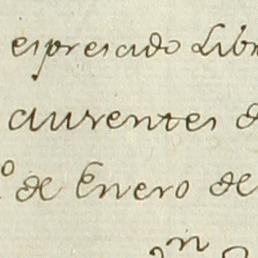 espresado Libr
aurentes d
o de Enero de
n